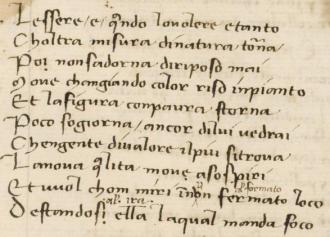 Lessere / e / qn̄do lovolere etanto
Choltra misura dinatura torna
Poi nonsadorna diriposo mai
Move changiando color riso inpianto
Et lafigura conpaura storna
Poco sogiorna / ancor dilui vedrai
Chengente divalore ilpiu sitrova
Lanova qlita move asospiri
Et vuol chom miri in non fermato loco
al. formato
Destandosi ella laqual manda foco
al. ira